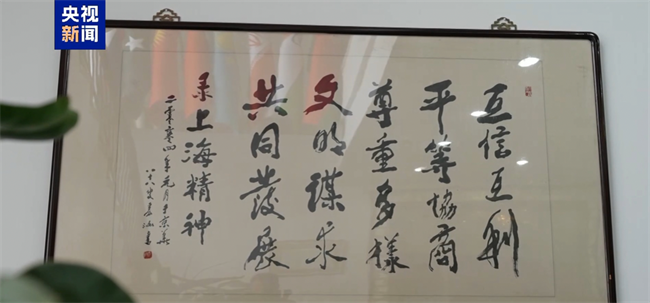 央视
新闻
互信互利
平等協商
尊重多樣
文明謀求
共同發展
录上海精神
二零零四年元月于京